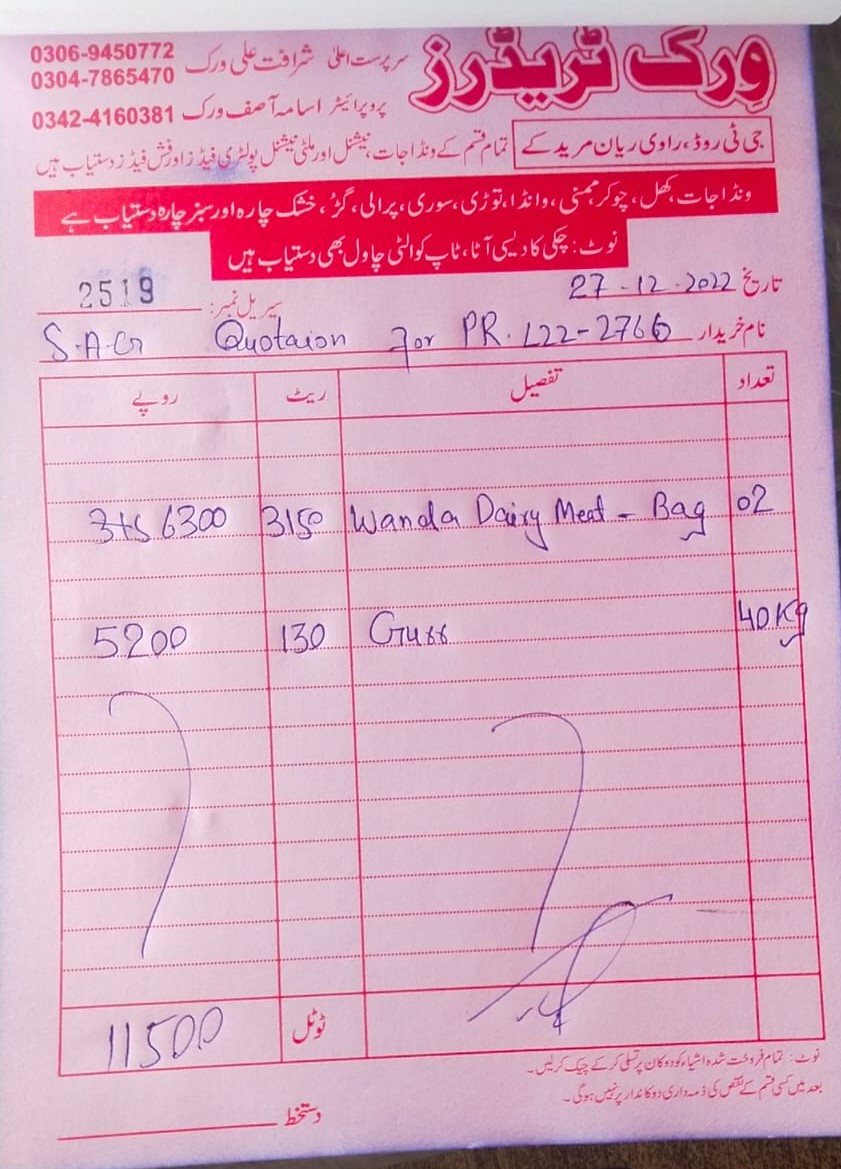 ورک ٹریڈرز
سرپرست اعلیٰ شرافت علی ورک 0306-9450772
0304-7865470
پروپرائیٹر اسامہ آصف ورک 0342-4160381
جی ٹی روڈ، راوی ریان مریدکے
تمام قسم کے ونڈا جات، نیشنل اور ملٹی نیشنل پولٹری فیڈز اور فش فیڈز دستیاب ہیں
ونڈا جات، کھل، چوکر، ممنی، وانڈا، توڑی، سوری، پرالی، گڑ، خشک چارہ اور سبز چارہ دستیاب ہے
نوٹ: چکی کا دیسی آٹا، ٹاپ کوالٹی چاول بھی دستیاب ہیں
تاریخ 27-12-2022 سیریل نمبر: 2519
نام خریدار S.A.G Quotaion For PR. L22-2766
تعداد تفصیل ریٹ روپے
02 Wanda Dairy Meat - Bag 3150 6300
40 Kg Gurr 130 5200
ٹوٹل 11500
نوٹ: تمام فروخت شدہ اشیاء کو دوکان پر تسلی کر کے چیک کر لیں۔
بعد میں کسی قسم کے نقص کی ذمہ داری دوکاندار پر نہیں ہوگی۔
دستخط